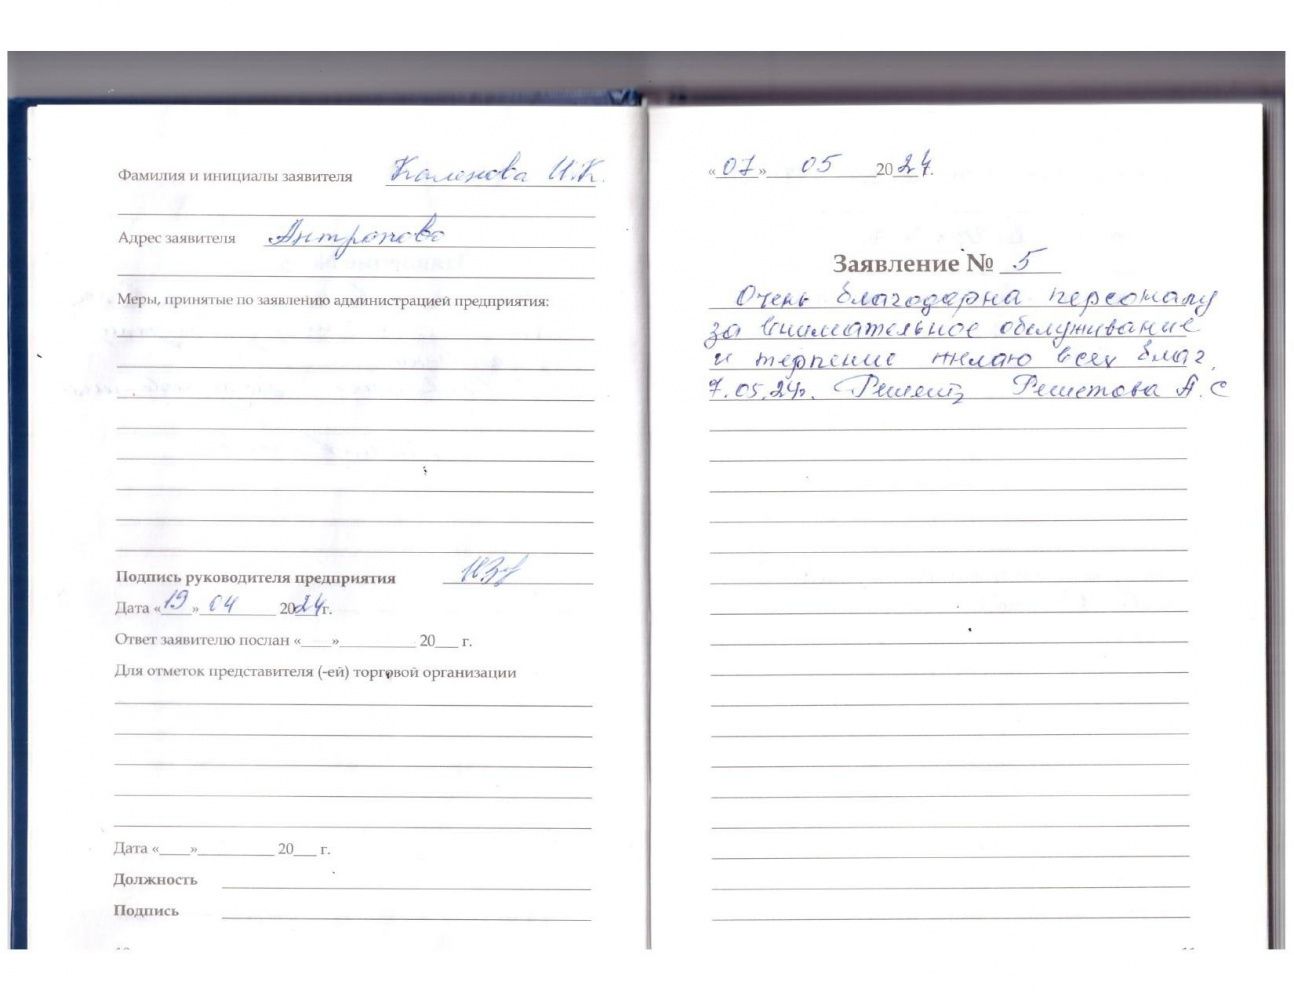 Фамилия и инициалы заявителя Каленова И.К.
Адрес заявителя Антропово
Меры, принятые по заявлению администрацией предприятия:
Подпись руководителя предприятия
Дата «19» 04 2024г.
Ответ заявителю послан «___»__________ 20___ г.
Для отметок представителя (-ей) торговой организации
Дата «____»__________ 20___ г.
Должность
Подпись
«07» 05 2024г.
Заявление № 5
Очень благодарна персоналу
за внимательное обслуживание
и терпение желаю всех благ.
7.05.24г. Решетова А.С